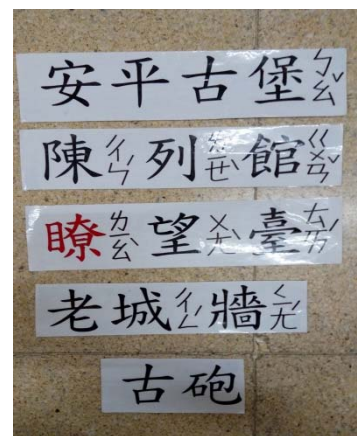 安平古堡ㄅㄠˇ
陳ㄔㄣˊ列ㄌㄧㄝˋ館ㄍㄨㄢˇ
瞭ㄌㄧㄠˋ望ㄨㄤˋ臺ㄊㄞˊ
老城ㄔㄥˊ牆ㄑㄧㄤˊ
古砲